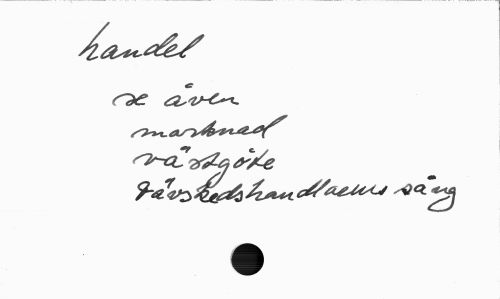 handel
se även
marknad
västgöte
Tävskedshandlaens sång